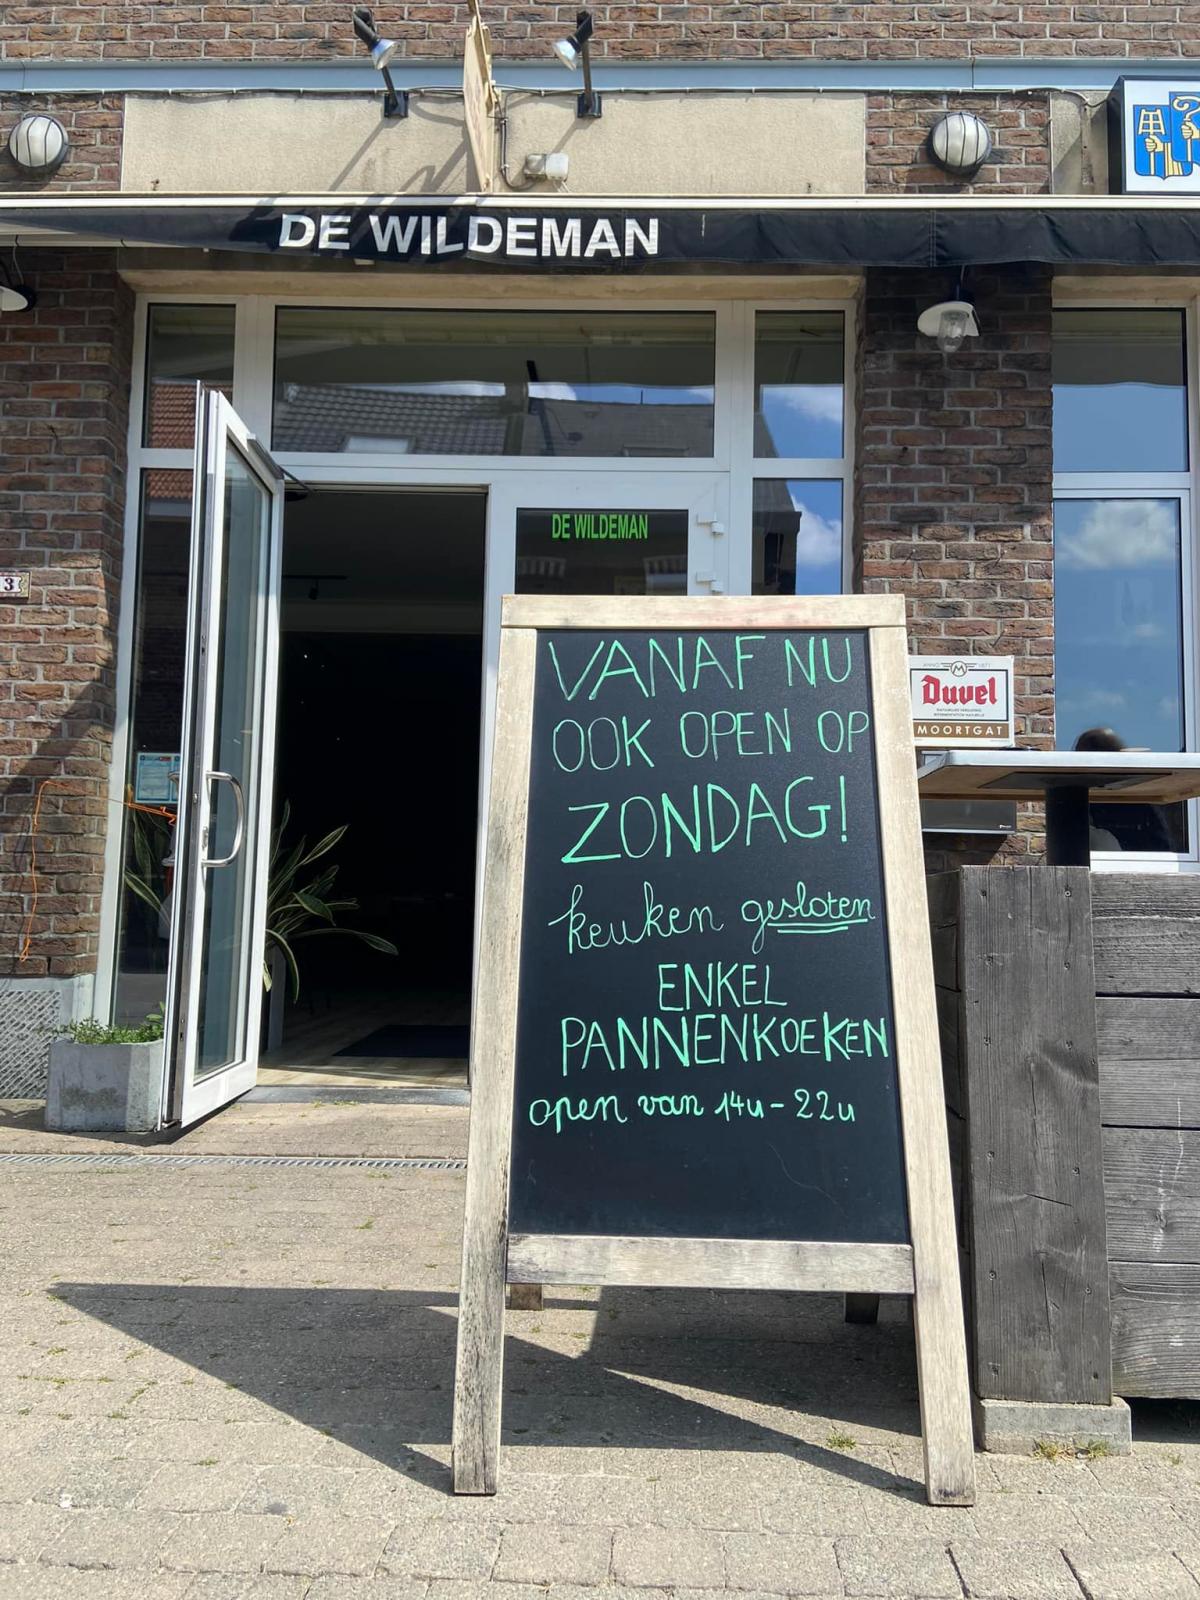 DE WILDEMAN
DE WILDEMAN
3
VANAF NU
OOK OPEN OP
ZONDAG!
keuken gesloten
ENKEL
PANNENKOEKEN
open van 14u - 22u
ANNO 1871
Duvel
MOORTGAT